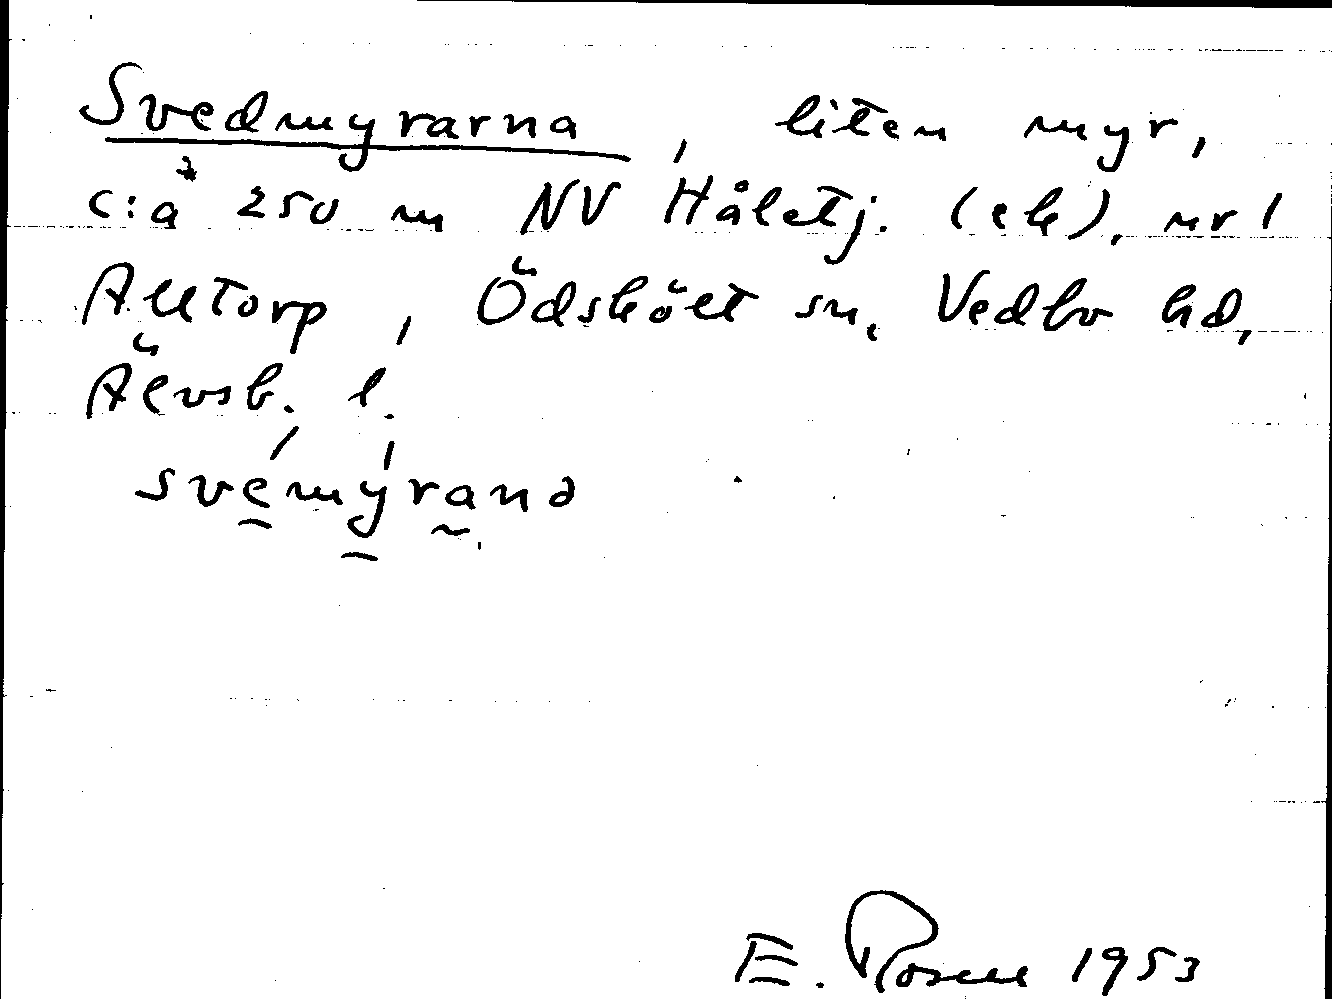 Svedmyrarna, liten myr,
c:a 250 m NV Håletj. (ek), nr 1
Alltorp, Ödskölt sn, Vedbo hd,
Älvsb. l.
svémýrana
E. Rosell 1953